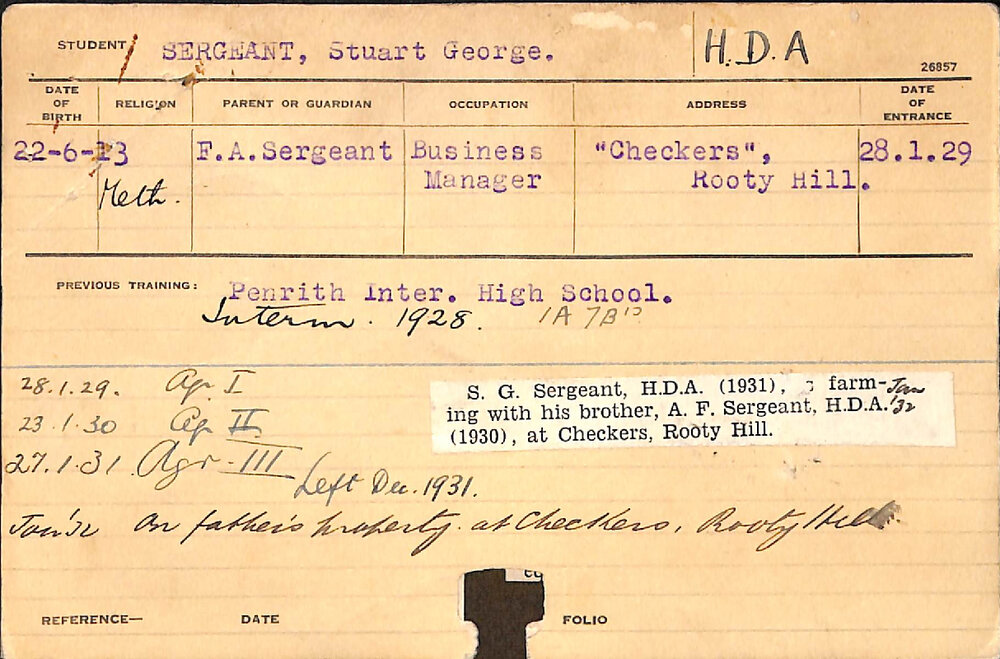 STUDENT SERGEANT, Stuart George. H.D.A
26857
DATE OF BIRTH RELIGION PARENT OR GUARDIAN OCCUPATION ADDRESS DATE OF ENTRANCE
22-6-13 F.A.Sergeant Business "Checkers", 28.1.29
Meth. Manager Rooty Hill.
PREVIOUS TRAINING: Penrith Inter. High School.
Interm. 1928. 1A 7B
28.1.29. Agr I
23.1.30 Agr II
27.1.31 Agr. III
Left Dec. 1931.
S. G. Sergeant, H.D.A. (1931), farm- Jan
ing with his brother, A. F. Sergeant, H.D.A. '32
(1930), at Checkers, Rooty Hill.
Jan '32 On father's property at Checkers, Rooty Hill.
REFERENCE— DATE FOLIO